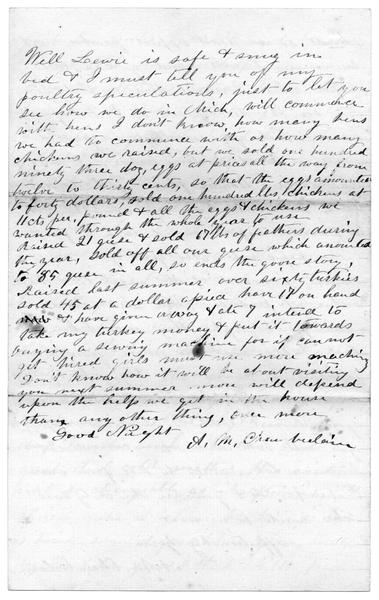 Well Lewie is safe & snug in
bed & I must tell you of my
poultry speculations, just to let you
see how we do in Mich, will commence
with hens I don't know how many hens
we had to commence with or how many
chickens we raised, but we sold one hundred
ninety three doz, eggs at prices all the way from
twelve to thirty cents, so that the eggs amounted
to forty dollars, sold one hundred lbs chickens at
11cts per, pound & all the eggs & chickens we
wanted through the whole year to use
Raised 21 geese & sold lbs of feathers during
the year, Sold off all our geese which amounted
to 35 geese in all, so ends the goose story,
Raised last summer over sixty turkies
sold 45 at a dollar apiece have 17 on hand
& have given away & ate 7 intend to
take my turkey money & put it towards
buying a sewing machine for if cannot
get hired girls must use more machinery
Don't know how it will be about visiting
you next summer will depend
upon the help we get in the house
than any other thing, once more
Good Night
A. M.